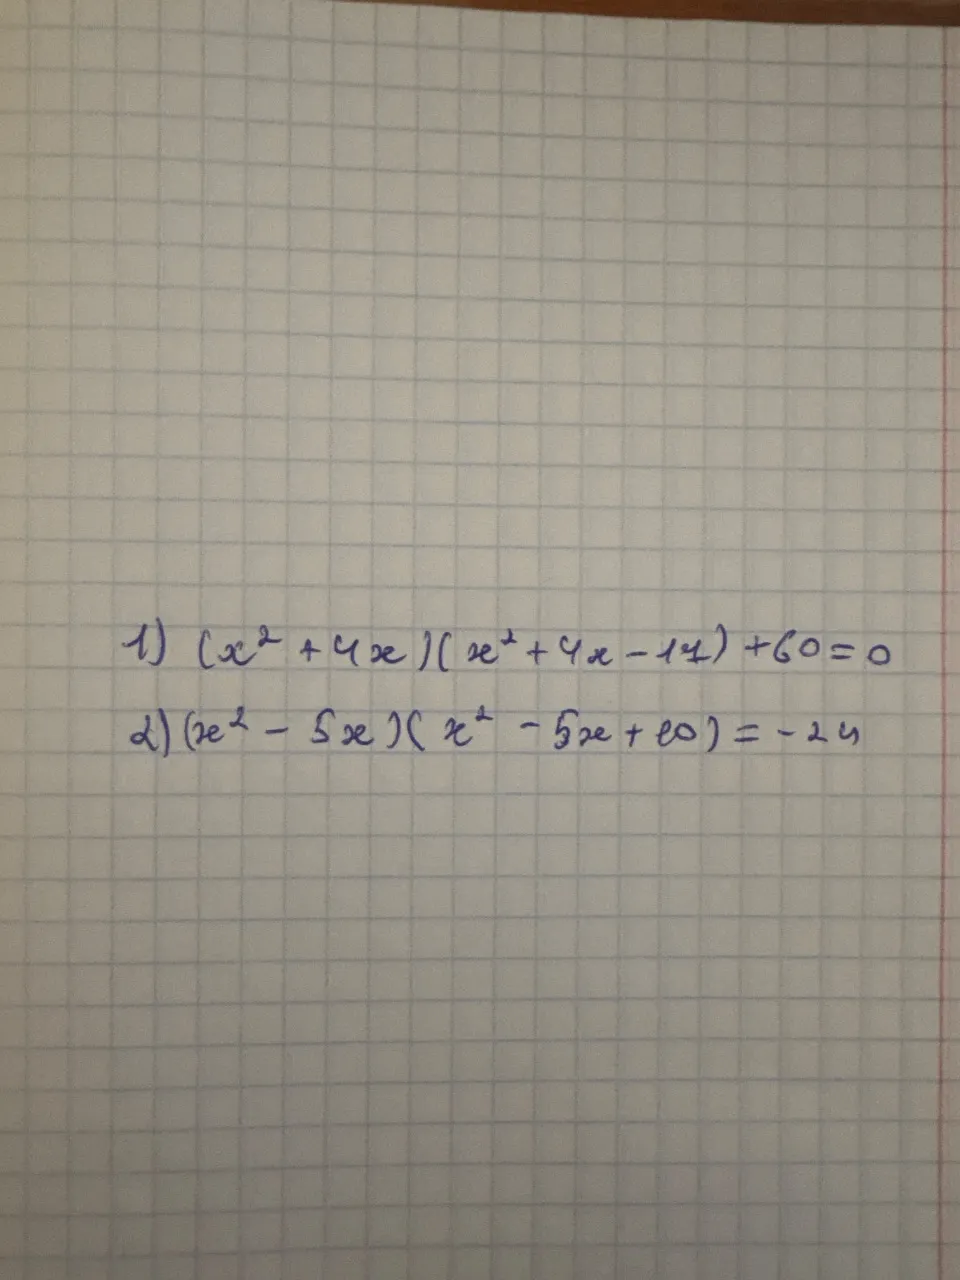 1) (x² + 4x)(x² + 4x - 17) + 60 = 0
2) (x² - 5x)(x² - 5x + 10) = -24